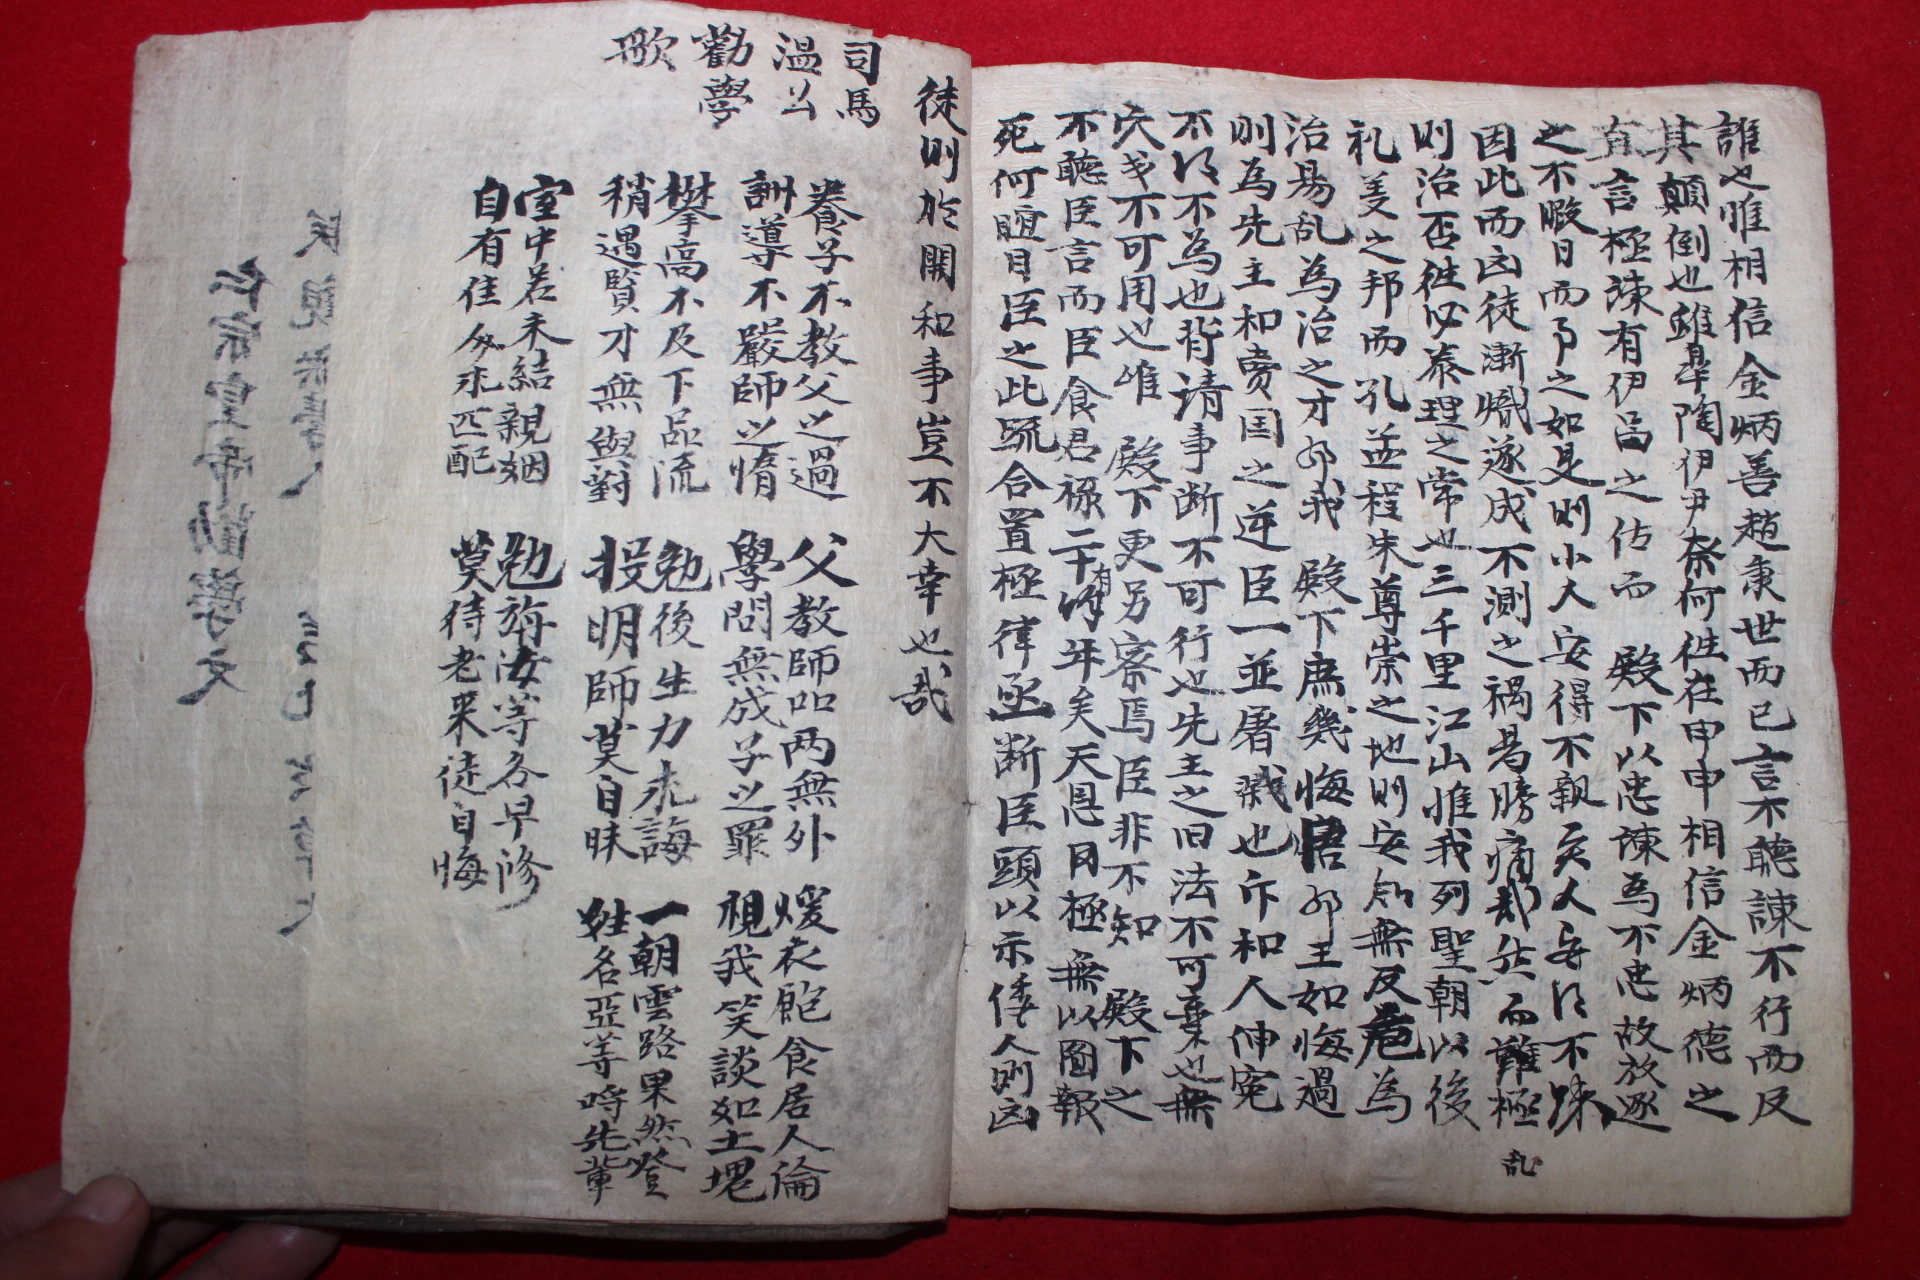 誰也惟相信金炳善趙秉世而已言不聽諫不行而反
其顛倒也雖皐陶伊尹奈何徃在甲申相信金炳德之
直言極諫有伊呂之佐而 殿下以忠諫為不忠故放逐
之不暇日而予之如是則小大安得不親矣人安得不踈
因此而凶徒漸熾遂成不測之禍曷勝痛哉然而難極
乱
則治否徃必泰理之常也三千里江山惟我列聖朝以後
礼義之邦而孔孟程朱尊崇之地則安知無反危為
治易乱為治之才耶我 殿下庶幾悔悟耶王如悔過
則為先主和賣国之逆臣一並屠戮也斥和人伸寃
不得不為也背請事断不可行也先王之旧法不可棄也無
不可用也惟 殿下更另察焉臣非不知 殿下之
不聽臣言而臣食君祿二十有年矣天恩罔極無以圖報
死何瞑目臣之此疏合置極律亟断臣頭以示倭人則凶
徒則於開和事豈不大幸也哉
司馬
溫公
勸學
歌
養子不教父之過
訓導不嚴師之惰
父教師叩两無外
學問無成子之罪
煖衣飽食居人倫
視我笑談如土塊
攀高不及下品流
稍遇賢才無與對
勉後生力求誨
投明師莫自昧
一朝雲路果然登
姓名亞等呼先輩
室中若未結親姻
自有佳匹配
勉旃汝等各早修
莫待老来徒自悔
仁宗皇帝勸學文